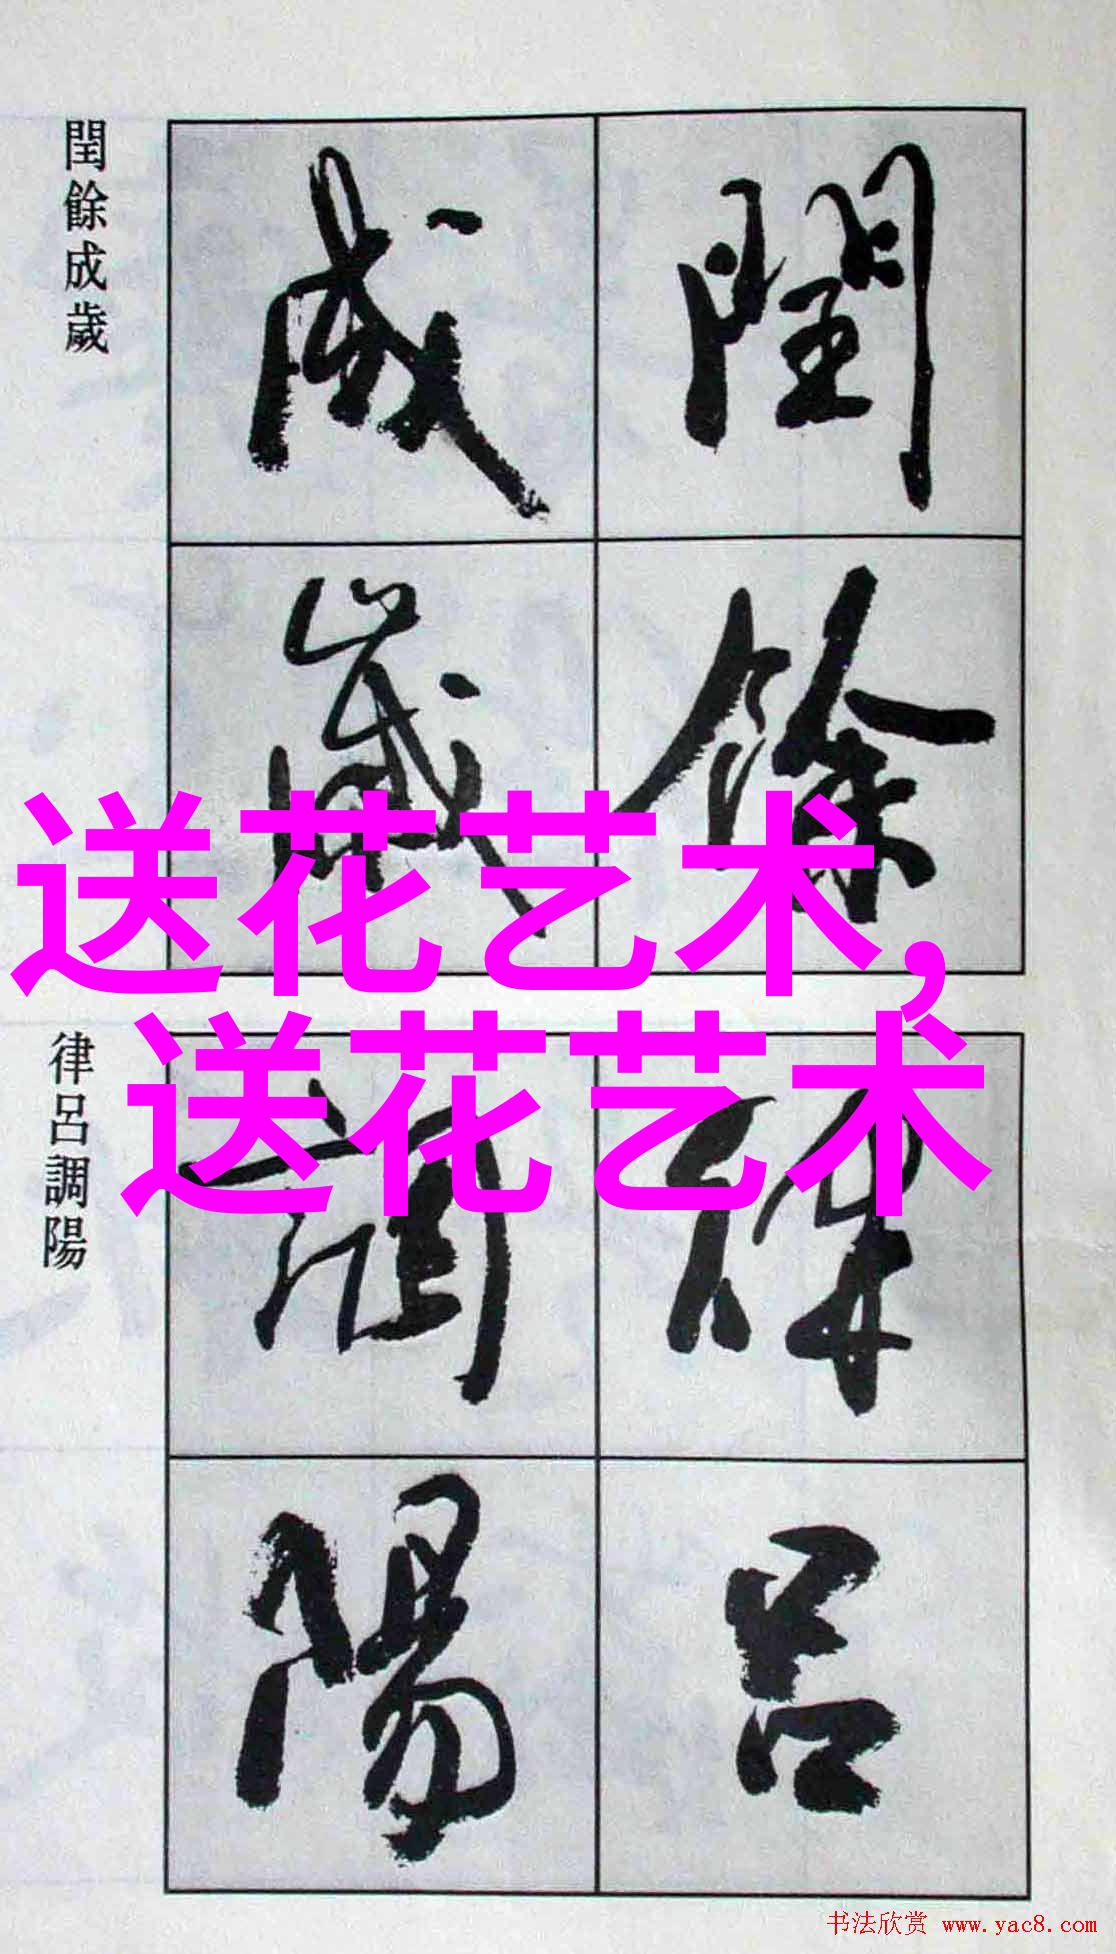 閏餘成歲
閏餘
成歲
送花艺术,
送花艺术
律呂調陽
律呂
調陽
书法欣赏 www.yac8.com